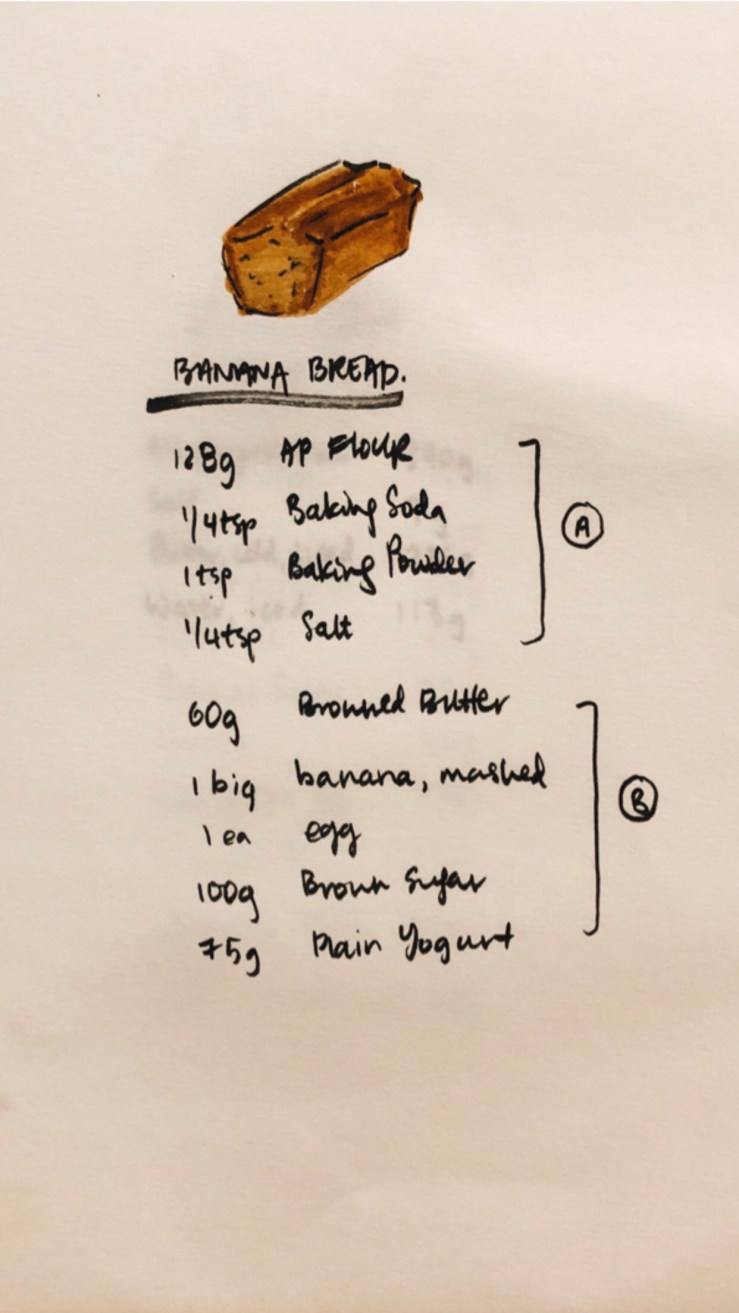 BANANA BREAD.
128g AP FLOUR
1/4tsp Baking Soda
1tsp Baking Powder
1/4tsp Salt
A
60g Browned Butter
1 big banana, mashed
1 ea egg
100g Brown Sugar
75g Plain Yogurt
B